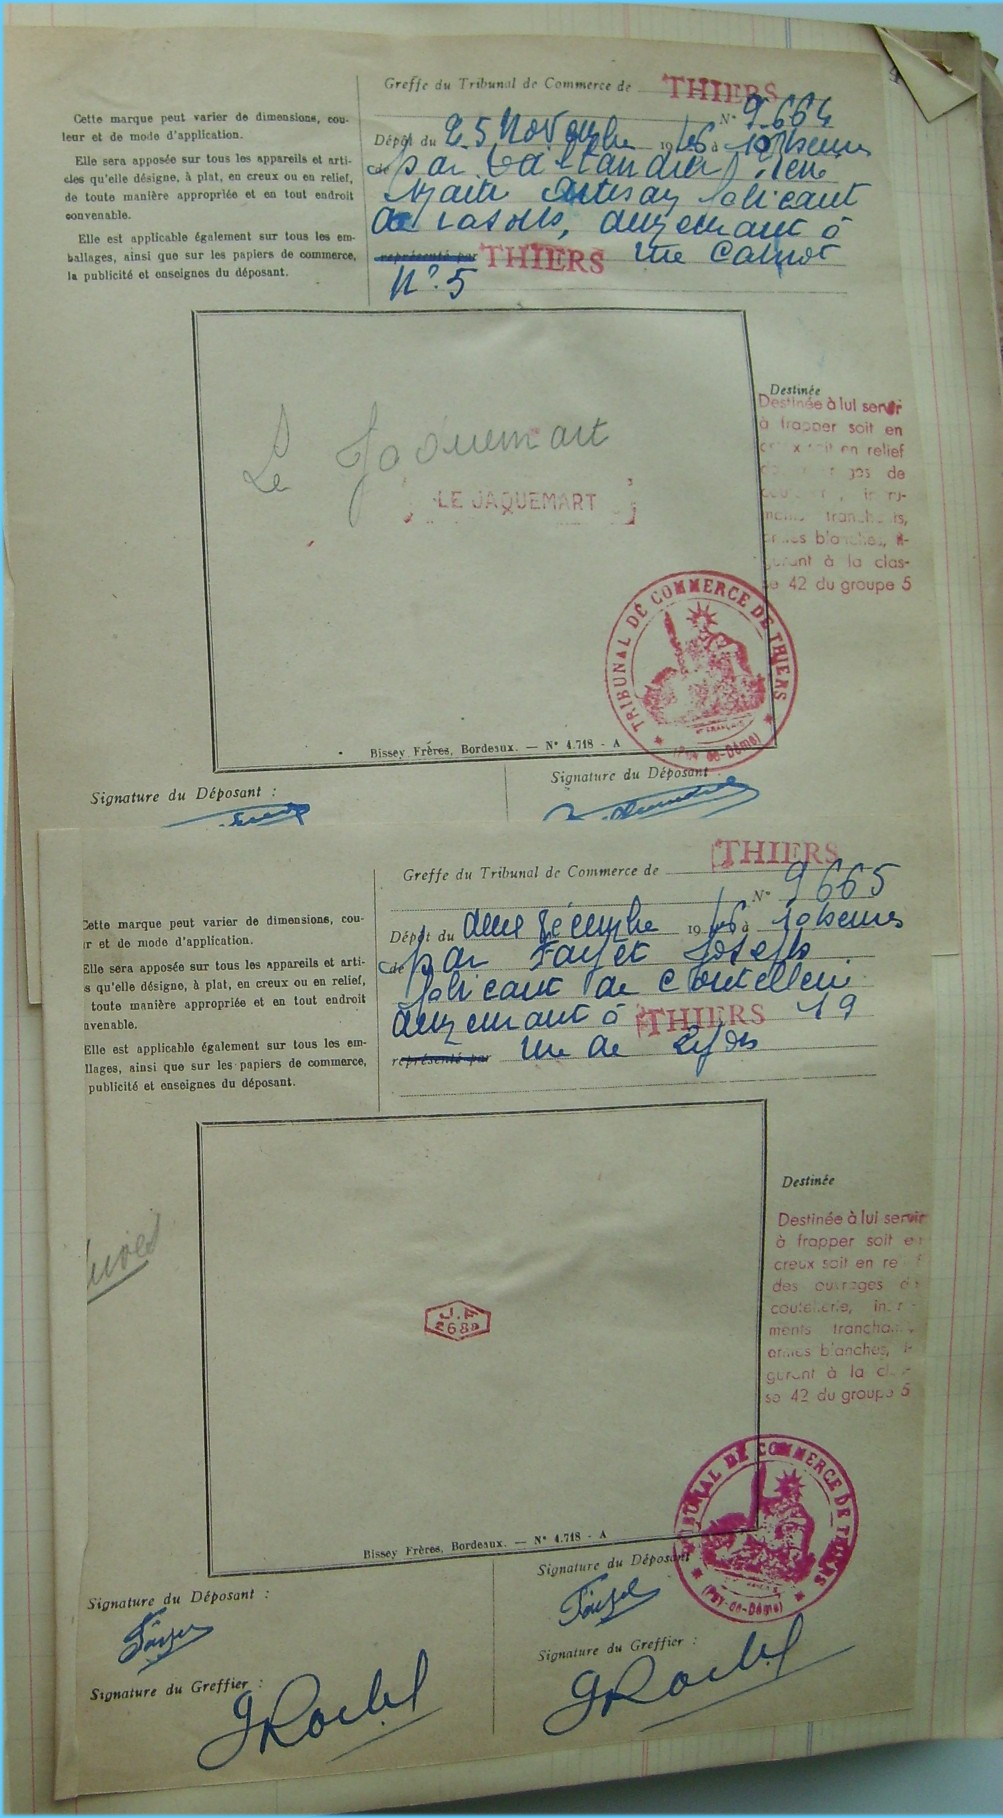 Greffe du Tribunal de Commerce de THIERS
N° 9.664
Cette marque peut varier de dimensions, cou-
leur et de mode d'application.
Elle sera apposée sur tous les appareils et arti-
cles qu'elle désigne, à plat, en creux ou en relief,
de toute manière appropriée et en tout endroit
convenable.
Elle est applicable également sur tous les em-
ballages, ainsi que sur les papiers de commerce,
la publicité et enseignes du déposant.
Dépôt du 25 Novembre 1946 à 10 heures
de par René
Maitre Artisan fabricant
de rasoirs, demeurant à
représenté par THIERS rue Carnot
N° 5
Le Jaquemart
LE JAQUEMART
Destinée
Destinée à lui servir
à frapper soit en
creux soit en relief
des ouvrages de
coutellerie, instru-
ments tranchants,
armes blanches, fi-
gurant à la clas-
se 42 du groupe 5
TRIBUNAL DE COMMERCE DE THIERS
(Puy-de-Dôme)
Bissey Frères, Bordeaux. — N° 4.718 - A
Signature du Déposant :
Signature du Déposant :
Greffe du Tribunal de Commerce de THIERS
N° 9665
Cette marque peut varier de dimensions, cou-
r et de mode d'application.
Elle sera apposée sur tous les appareils et arti-
s qu'elle désigne, à plat, en creux ou en relief,
toute manière appropriée et en tout endroit
nvenable.
Elle est applicable également sur tous les em-
llages, ainsi que sur les papiers de commerce,
publicité et enseignes du déposant.
Dépôt du deux Décembre 1946 à 10 heures
de par Fayet Joseph
fabricant de coutellerie
demeurant à THIERS 19
représenté par rue de
J.F
Destinée
Destinée à lui servir
à frapper soit en
creux soit en relief
des ouvrages de
coutellerie, instru-
ments tranchants,
armes blanches, fi-
gurant à la clas-
se 42 du groupe 5
TRIBUNAL DE COMMERCE DE THIERS
(Puy-de-Dôme)
Bissey Frères, Bordeaux. — N° 4.718 - A
Signature du Déposant :
Signature du Déposant
Signature du Greffier :
Signature du Greffier :